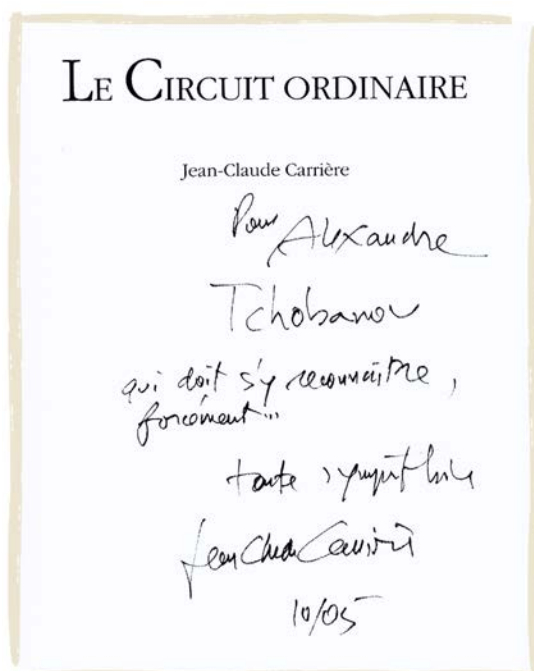 LE CIRCUIT ORDINAIRE
Jean-Claude Carrière
Pour Alexandre
Tchobanov
qui doit s'y reconnaître,
forcément...
toute sympathie
Jean Claude Carrière
10/05